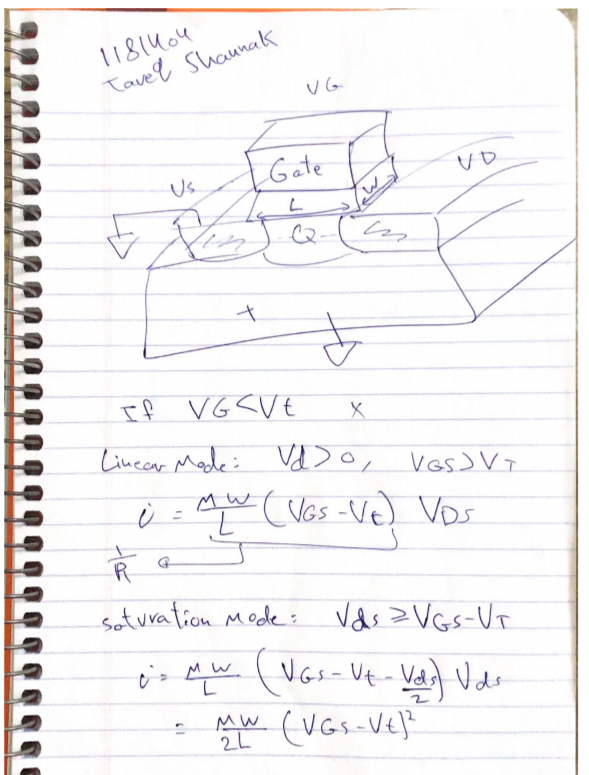 1181404
Tareq Shannak
VG
Gate
VD
Vs
W
L
Q
+
If VG<Vt x
Linear Mode: Vd>0, VGS>VT
i = MW/L (VGS-Vt) VDS
1/R
soturation mode: Vds ≥ VGS-VT
i = MW/L (VGS-Vt-Vds/2) Vds
= MW/2L (VGS-Vt)²